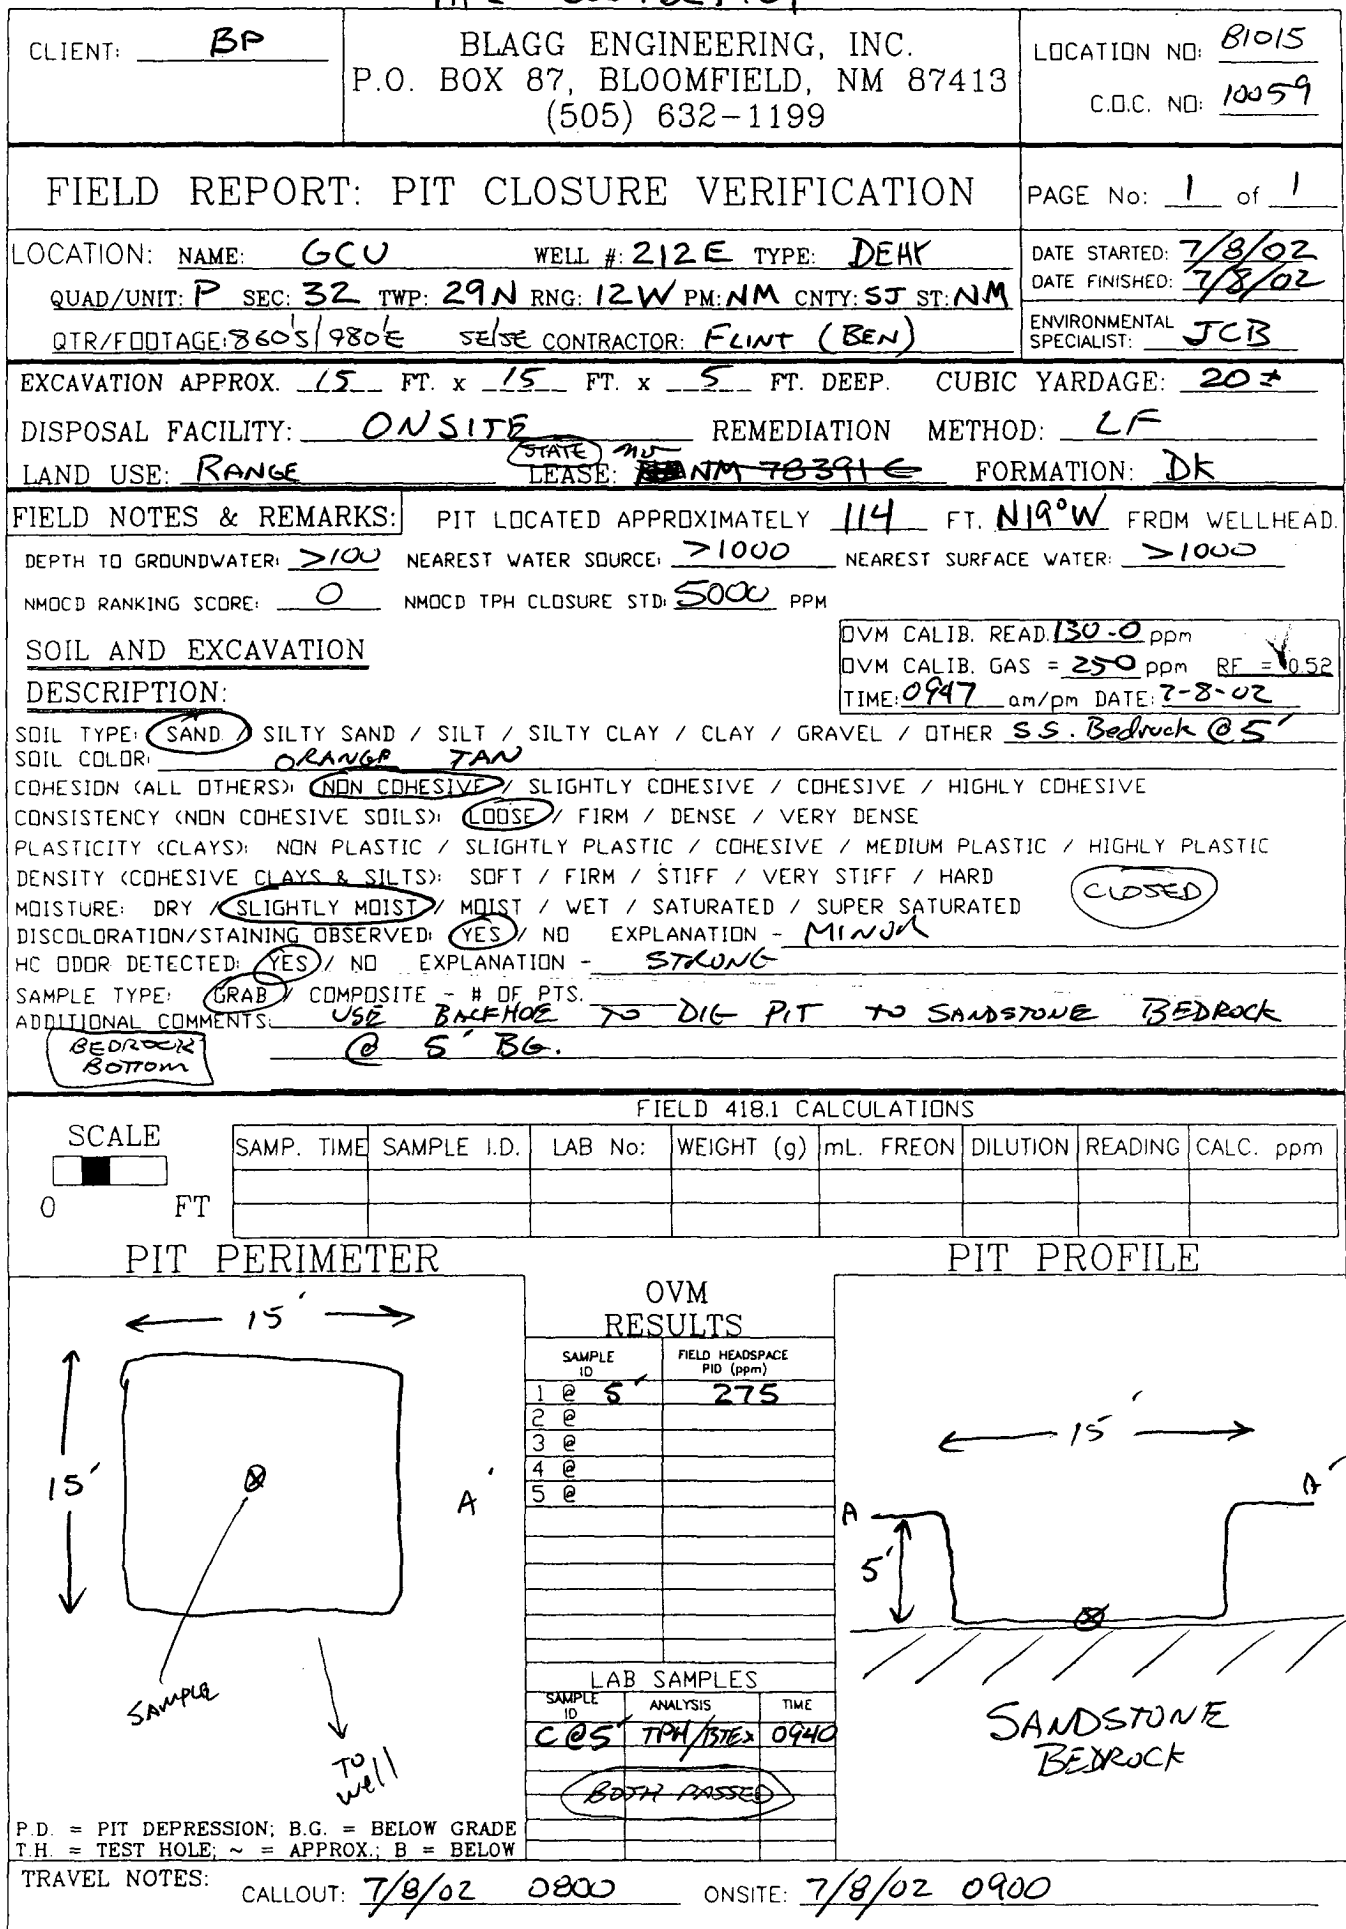 CLIENT: BP
BLAGG ENGINEERING, INC.
P.O. BOX 87, BLOOMFIELD, NM 87413
(505) 632-1199
LOCATION NO: B1015
C.O.C. NO: 10059
FIELD REPORT: PIT CLOSURE VERIFICATION
PAGE No: 1 of 1
LOCATION: NAME: GCU WELL #: 212E TYPE: DEHY
QUAD/UNIT: P SEC: 32 TWP: 29N RNG: 12W PM: NM CNTY: SJ ST: NM
QTR/FOOTAGE: 860'S/980'E SE/SE CONTRACTOR: FLINT (BEN)
DATE STARTED: 7/8/02
DATE FINISHED: 7/8/02
ENVIRONMENTAL SPECIALIST: JCB
EXCAVATION APPROX. 15 FT. x 15 FT. x 5 FT. DEEP. CUBIC YARDAGE: 20±
DISPOSAL FACILITY: ONSITE REMEDIATION METHOD: LF
LAND USE: RANGE STATE LEASE: NM 78391E FORMATION: DK
FIELD NOTES & REMARKS: PIT LOCATED APPROXIMATELY 114 FT. N19°W FROM WELLHEAD.
DEPTH TO GROUNDWATER: >100 NEAREST WATER SOURCE: >1000 NEAREST SURFACE WATER: >1000
NMOCD RANKING SCORE: 0 NMOCD TPH CLOSURE STD: 5000 PPM
SOIL AND EXCAVATION
DESCRIPTION:
OVM CALIB. READ. 130.0 ppm
OVM CALIB. GAS = 250 ppm RF = 0.52
TIME: 0947 am/pm DATE: 7-8-02
SOIL TYPE: SAND / SILTY SAND / SILT / SILTY CLAY / CLAY / GRAVEL / OTHER S.S. Bedrock @ 5'
SOIL COLOR: ORANGE TAN
COHESION (ALL OTHERS): NON COHESIVE / SLIGHTLY COHESIVE / COHESIVE / HIGHLY COHESIVE
CONSISTENCY (NON COHESIVE SOILS): LOOSE / FIRM / DENSE / VERY DENSE
PLASTICITY (CLAYS): NON PLASTIC / SLIGHTLY PLASTIC / COHESIVE / MEDIUM PLASTIC / HIGHLY PLASTIC
DENSITY (COHESIVE CLAYS & SILTS): SOFT / FIRM / STIFF / VERY STIFF / HARD
CLOSED
MOISTURE: DRY / SLIGHTLY MOIST / MOIST / WET / SATURATED / SUPER SATURATED
DISCOLORATION/STAINING OBSERVED: YES / NO EXPLANATION - MINOR
HC ODOR DETECTED: YES / NO EXPLANATION - STRONG
SAMPLE TYPE: GRAB / COMPOSITE - # OF PTS.
ADDITIONAL COMMENTS: USE BACKHOE TO DIG PIT TO SANDSTONE BEDROCK
@ 5' BG.
BEDROCK
BOTTOM
FIELD 418.1 CALCULATIONS
SCALE
0 FT
SAMP. TIME SAMPLE I.D. LAB No: WEIGHT (g) mL. FREON DILUTION READING CALC. ppm
PIT PERIMETER
15'
15'
A'
SAMPLE
TO well
P.D. = PIT DEPRESSION; B.G. = BELOW GRADE
T.H. = TEST HOLE; ~ = APPROX.; B = BELOW
OVM
RESULTS
SAMPLE ID FIELD HEADSPACE PID (ppm)
1 @ 5' 275
2 @
3 @
4 @
5 @
LAB SAMPLES
SAMPLE ID ANALYSIS TIME
C@5' TPH/BTEX 0940
BOTH PASSED
PIT PROFILE
15'
A
A'
5'
SANDSTONE
BEDROCK
TRAVEL NOTES: CALLOUT: 7/8/02 0800 ONSITE: 7/8/02 0900